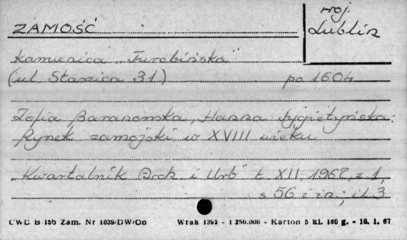 ZAMOŚĆ
woj. Lublin
Kamienica "Turobińska"
(ul Staszica 31) po 1604
Zofia Baranowska, Hanna Sygietyńska:
Rynek zamojski w XVIII wieku
"Kwartalnik Arch. i Urb" t. XII, 1968, z. 1,
s 56 i in; il. 3
CWD B-155 Zam. Nr 1039/DW/Oo Wrak 1393 - 1 250.000 - Karton 5 kl. 160 g. - 10. 1. 67